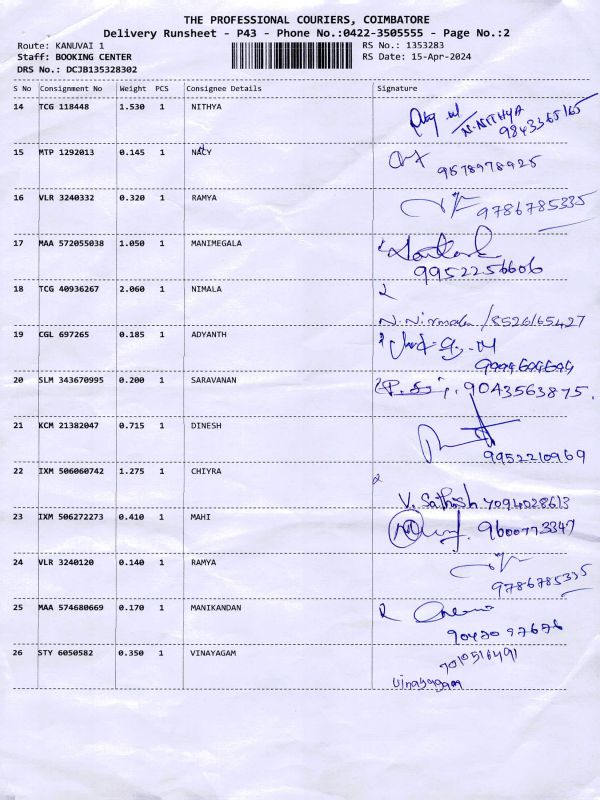 THE PROFESSIONAL COURIERS, COIMBATORE
Delivery Runsheet - P43 - Phone No.:0422-3505555 - Page No.:2
Route: KANUVAI 1 RS No.: 1353283
Staff: BOOKING CENTER RS Date: 15-Apr-2024
DRS No.: DCJB135328302
S No Consignment No Weight PCS Consignee Details Signature
14 TCG 118448 1.530 1 NITHYA
N.NITHYA
9843365165
15 MTP 1292013 0.145 1 NACY
9578978925
16 VLR 3240332 0.320 1 RAMYA
9786785335
17 MAA 572055038 1.050 1 MANIMEGALA
9952256606
18 TCG 40936267 2.060 1 NIMALA
N.Nirmala /8526165427
19 CGL 697265 0.185 1 ADYANTH
20 SLM 343670995 0.200 1 SARAVANAN 9043563875.
21 KCM 21382047 0.715 1 DINESH
9952210969
22 IXM 506060742 1.275 1 CHIYRA
V. Sathish 7094028613
23 IXM 506272273 0.410 1 MAHI 9600773347
24 VLR 3240120 0.140 1 RAMYA
9786785335
25 MAA 574680669 0.170 1 MANIKANDAN
26 STY 6050582 0.350 1 VINAYAGAM 7010516491
vinayagam